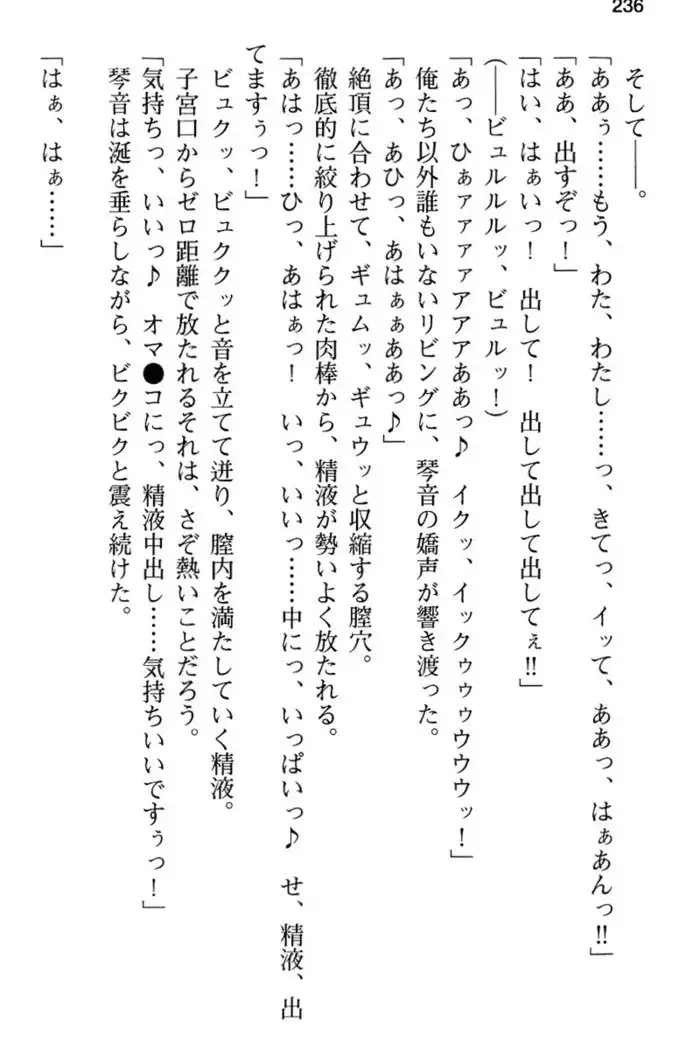 236
そして――。
「ああぅ……もう、わた、わたし……っ、きてっ、イッて、ああっ、はぁあんっ!!」
「ああ、出すぞっ!」
「はい、はぁいっ! 出して! 出して出してぇ!!」
(――ビュルルルッ、ビュルッ!)
「あっ、ひぁァァァアアアああっ♪ イクッ、イックゥゥゥウウウッ!」
俺たち以外誰もいないリビングに、琴音の嬌声が響き渡った。
「あっ、あひっ、あはぁぁああっ♪」
絶頂に合わせて、ギュムッ、ギュウッと収縮する膣穴。
徹底的に絞り上げられた肉棒から、精液が勢いよく放たれる。
「あはっ……ひっ、あはぁっ! いっ、いいっ……中にっ、いっぱいっ♪ せ、精液、出
てますぅっ!」
ビュクッ、ビュククッと音を立てて迸り、膣内を満たしていく精液。
子宮口からゼロ距離で放たれるそれは、さぞ熱いことだろう。
「気持ちっ、いいっ♪ オマ●コにっ、精液中出し……気持ちいいですぅっ!」
琴音は涎を垂らしながら、ビクビクと震え続けた。
「はぁ、はぁ……」